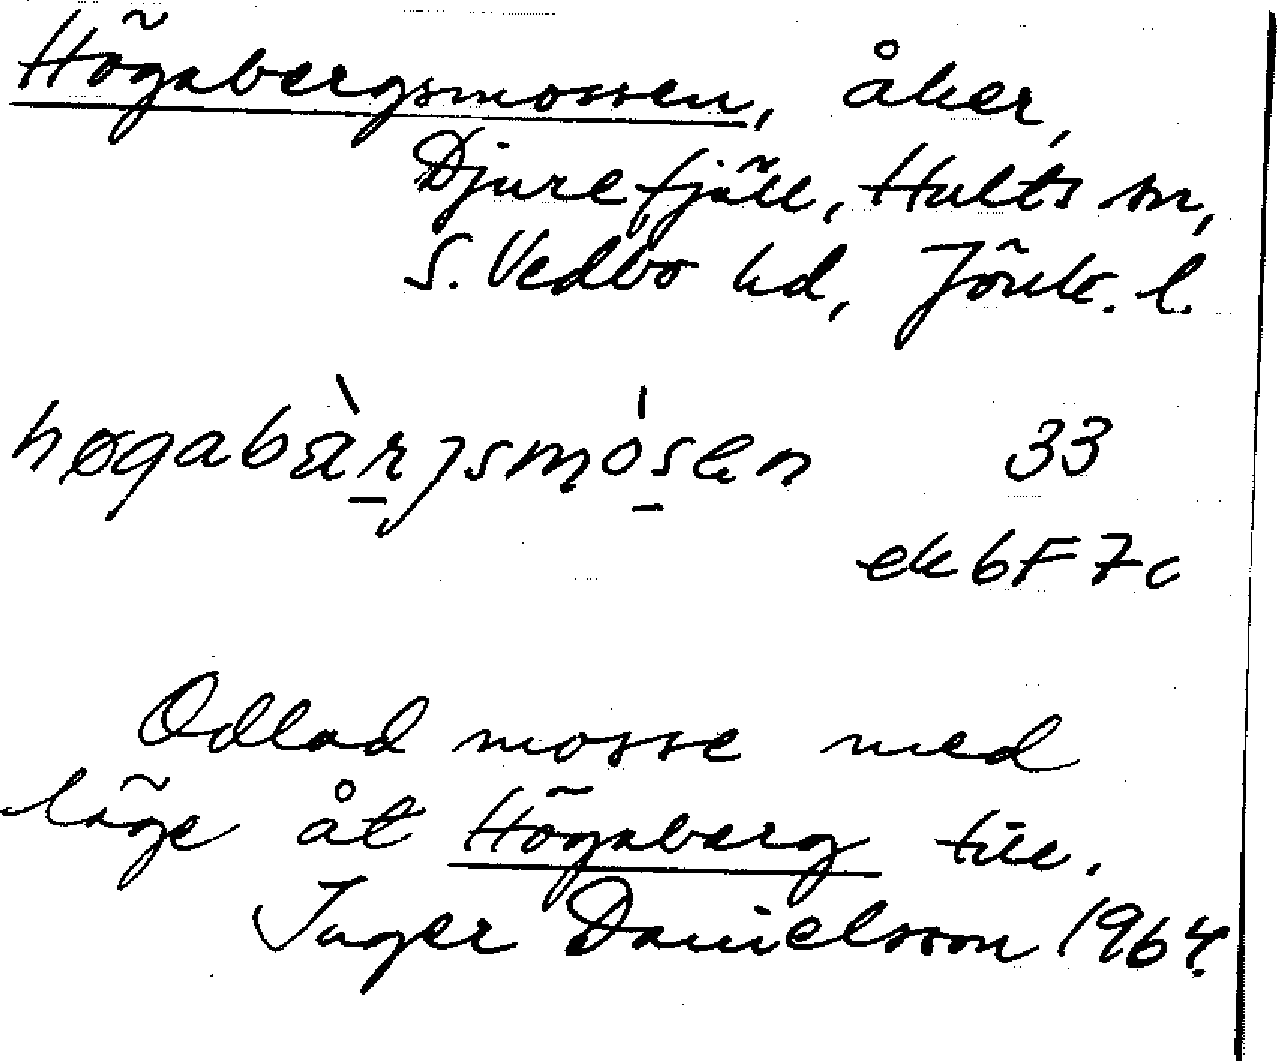 Högabergsmossen, åker,
Djurefjäll, Hults sn,
S. Vedbo hd, Jönk. l.
høgabàrjsmósen 33
ek 6F 7c
Odlad mosse med
läge åt Högaberg till.
Inger Danielsson 1964.